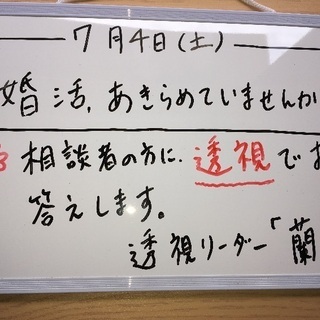 7月4日(土)
婚活,あきらめていませんか
相談者の方に、透視でお
答えします。
透視リーダー「蘭